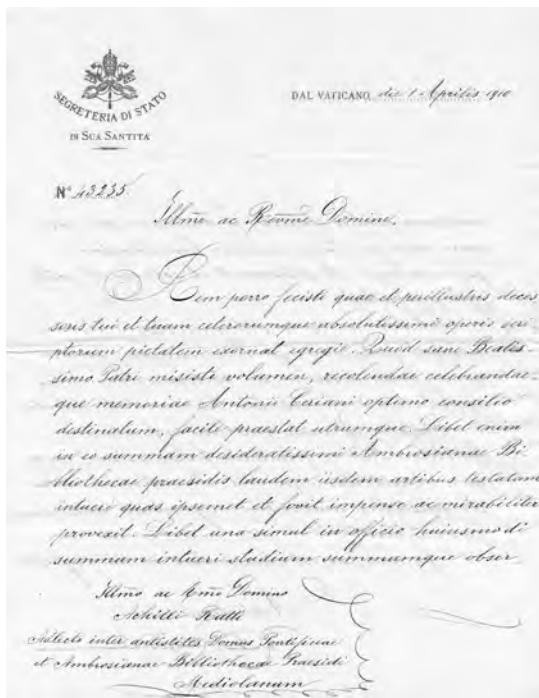 SEGRETERIA DI STATO
DI SUA SANTITÀ
DAL VATICANO, die 1 Aprilis 1910
N° 43235
Illme ac Revme Domine,
Rem porro fecisti quae et perillustris deces
soris tui et tuam ceterorumque absolutissimi operis scri
ptorum pietatem exornat egregie. Quod sane Beatis
simo Patri misisti volumen, recolendae celebrandae
que memoriae Antonii Ceriani optimo consilio
destinatum, facile praestat utrumque. Libet enim
in eo summam desideratissimi Ambrosianae Bi
bliothecae praesidis laudem iisdem artibus testatam
intueri quas ipsemet et fovit impense ac mirabiliter
provexit. Libet una simul in officio huiusmodi
summam intueri studium summamque obser
Illmo ac Rmo Domino
Achilli Ratti
Adlecto inter antistites Domus Pontificiae
et Ambrosianae Bibliothecae Praesidi
Mediolanum